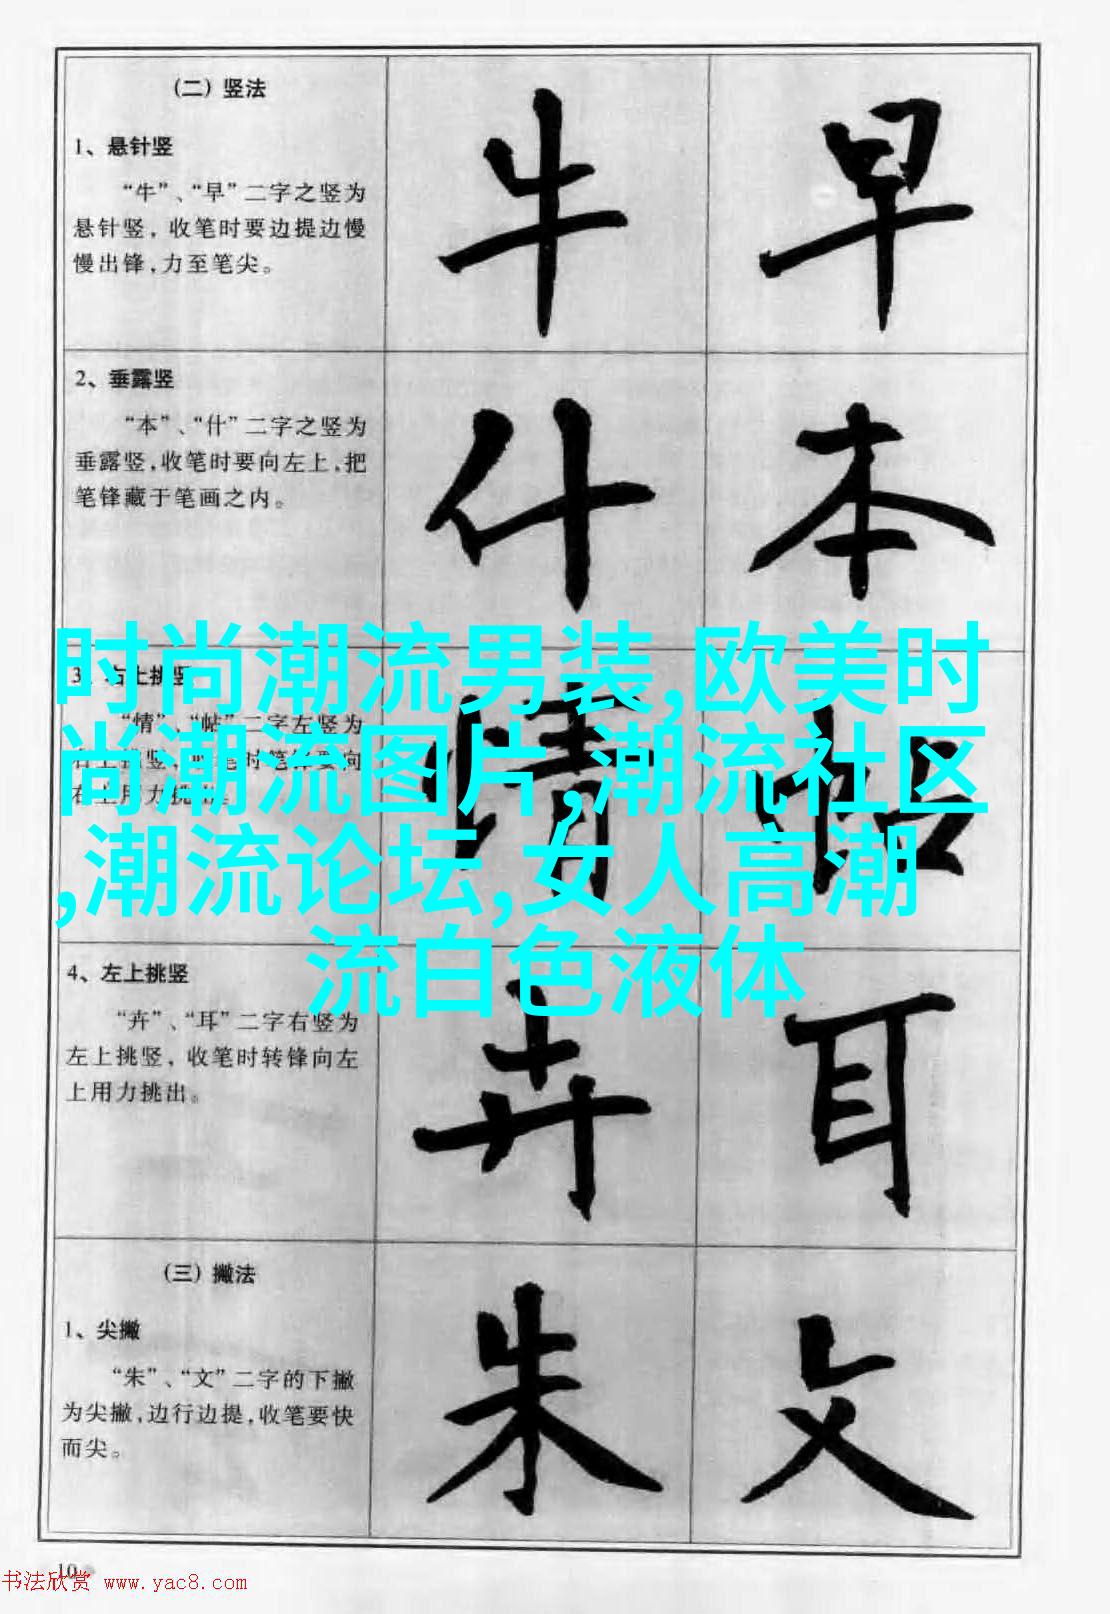 （二）竖法
1、悬针竖
“牛”、“早”二字之竖为
悬针竖，收笔时要边提边慢
慢出锋，力至笔尖。
牛 早
2、垂露竖
“本”、“什”二字之竖为
垂露竖，收笔时要向左上，把
笔锋藏于笔画之内。
什 本
3、右上挑竖
“情”、“帖”二字左竖为
情 帖
时尚潮流男装,欧美时
尚潮流图片,潮流社区
,潮流论坛,女人高潮
流白色液体
4、左上挑竖
“卉”、“耳”二字右竖为
左上挑竖，收笔时转锋向左
上用力挑出。
卉 耳
（三）撇法
1、尖撇
“朱”、“文”二字的下撇
为尖撇，边行边提，收笔要快
而尖。
朱 文
10
书法欣赏 www.yac8.com